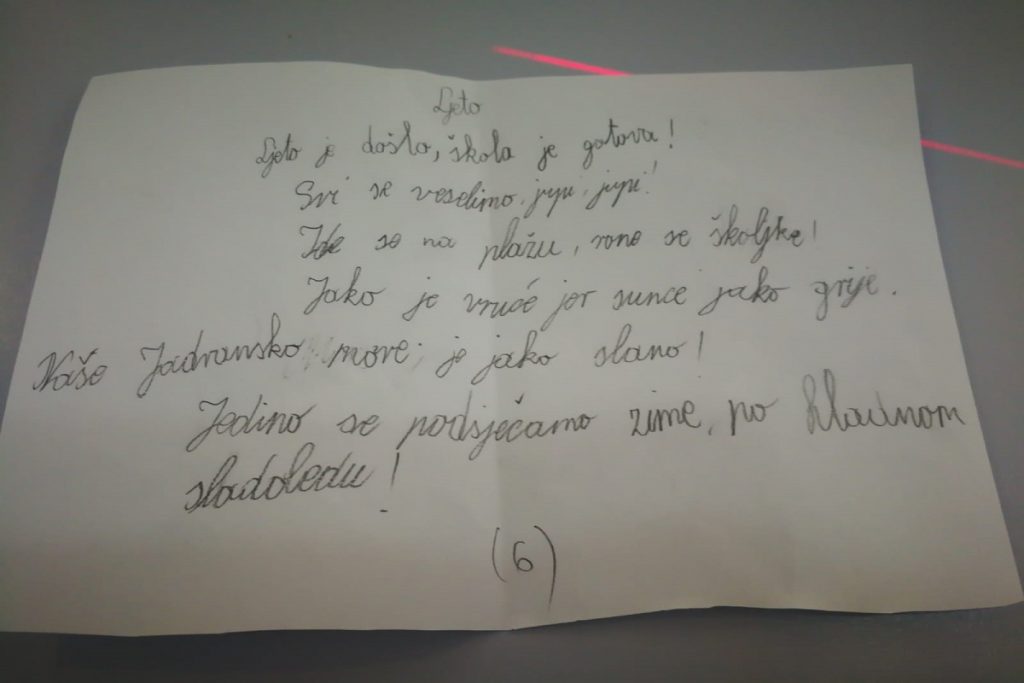 Ljeto
Ljeto je došlo, škola je gotova!
Svi se veselimo, jupi, jupi!
Ide se na plažu, rone se školjke!
Jako je vruće jer sunce jako grije.
Naše Jadransko more, je jako slano!
Jedino se podsjećamo zime, po hladnom
sladoledu!
(6)